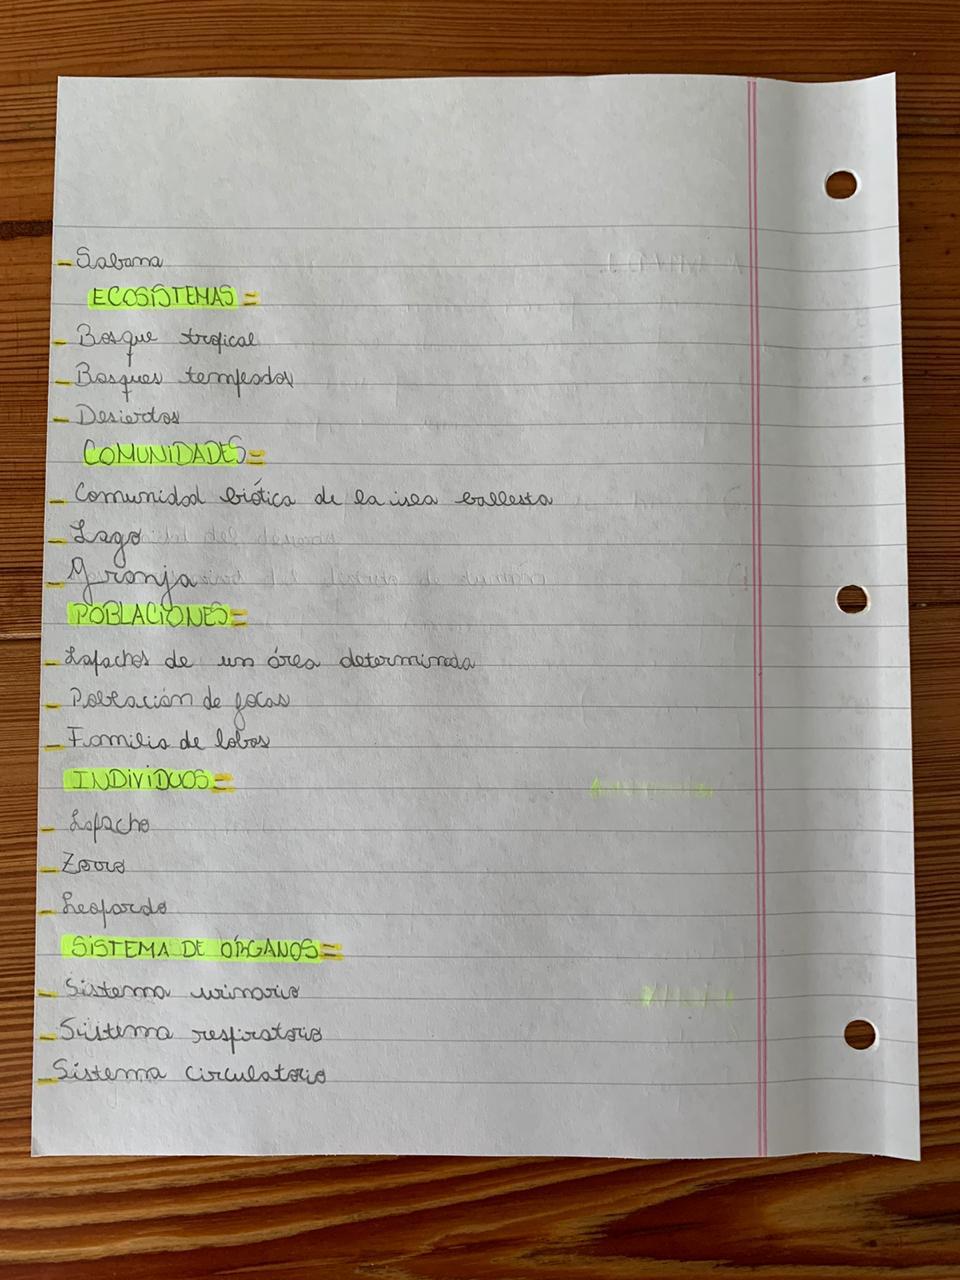 - Sabana
ECOSISTEMAS =
- Bosque tropical
- Bosques tempados
- Desiertos
COMUNIDADES =
- Comunidad biótica de la isea ballesta
- Lago
- Granja
POBLACIONES =
- Lapachos de un área determinada
- Población de focas
- Familia de lobos
INDIVIDUOS =
- Lapacho
- Zorro
- Leopardo
SISTEMA DE ÓRGANOS =
- Sistema urinario
- Sistema respiratorio
- Sistema circulatorio